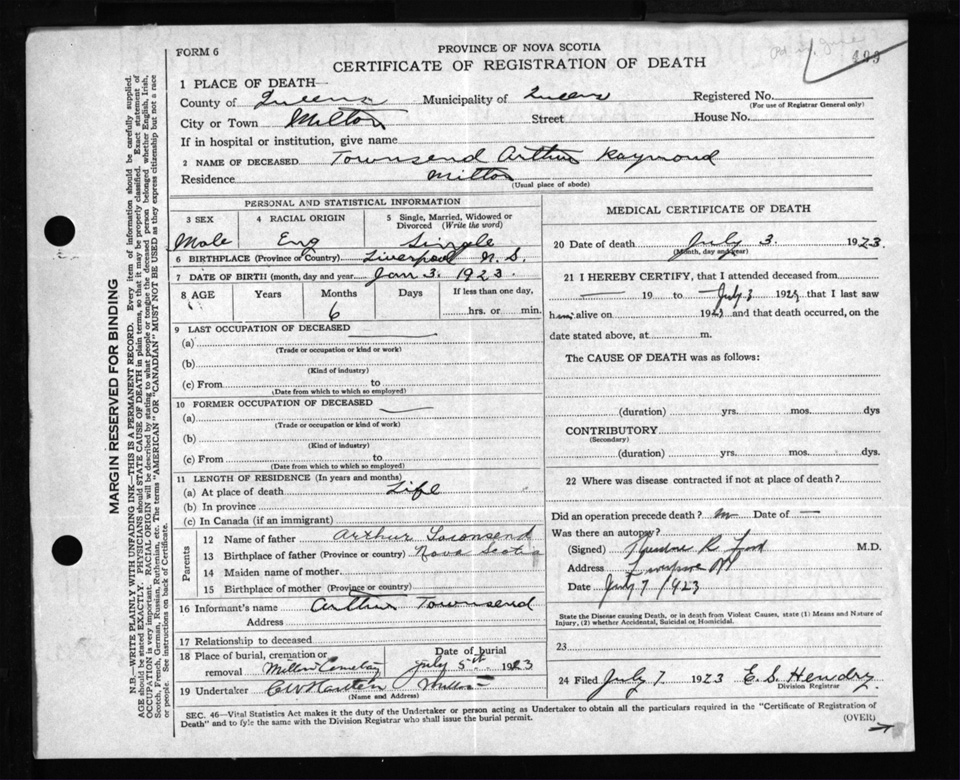 FORM 6
PROVINCE OF NOVA SCOTIA
CERTIFICATE OF REGISTRATION OF DEATH
MARGIN RESERVED FOR BINDING
N.B.—WRITE PLAINLY WITH UNFADING INK—THIS IS A PERMANENT RECORD. Every item of information should be carefully supplied.
AGE should be stated EXACTLY. PHYSICIANS should STATE CAUSE OF DEATH in plain terms, so that it may be properly classified. Exact statement of
OCCUPATION is very important. RACIAL ORIGIN will be described by stating to what people or tongue the deceased person belonged whether English, Irish,
Scotch, French, German, Russian, Ruthenian, etc. The terms "AMERICAN" OR "CANADIAN" MUST NOT BE USED as they express citizenship but not a race
or people. See instructions on back of Certificate.
1 PLACE OF DEATH—
County of Queens Municipality of Queens Registered No.
(For use of Registrar General only)
City or Town Milton Street House No.
If in hospital or institution, give name
2 NAME OF DECEASED Townsend Arthur Raymond
Residence Milton
(Usual place of abode)
PERSONAL AND STATISTICAL INFORMATION
3 SEX 4 RACIAL ORIGIN 5 Single, Married, Widowed or Divorced (Write the word)
Male Eng Single
6 BIRTHPLACE (Province or Country) Liverpool N.S.
7 DATE OF BIRTH (month, day and year) Jan 3. 1923.
8 AGE Years Months Days If less than one day,
6 hrs. or min.
9 LAST OCCUPATION OF DECEASED
(a)
(Trade or occupation or kind or work)
(b)
(Kind of industry)
(c) From to
(Date from which to which so employed)
10 FORMER OCCUPATION OF DECEASED
(a)
(Trade or occupation or kind of work)
(b)
(Kind of industry)
(c) From to
(Date from which to which so employed)
11 LENGTH OF RESIDENCE (In years and months)
(a) At place of death Life
(b) In province
(c) In Canada (if an immigrant)
Parents
12 Name of father Arthur Townsend
13 Birthplace of father (Province or country) Nova Scotia
14 Maiden name of mother
15 Birthplace of mother (Province or country)
16 Informant's name Arthur Townsend
Address
17 Relationship to deceased
18 Place of burial, cremation or removal Date of burial
Milton Cemetery July 5th 1923
19 Undertaker Milton
(Name and Address)
MEDICAL CERTIFICATE OF DEATH
20 Date of death July 3. 1923.
(Month, day and year)
21 I HEREBY CERTIFY, that I attended deceased from
— 19 to — July 3 1923 that I last saw
him alive on 1923 and that death occurred, on the
date stated above, at m.
The CAUSE OF DEATH was as follows:
(duration) yrs. mos. dys
CONTRIBUTORY
(Secondary)
(duration) yrs. mos. dys.
22 Where was disease contracted if not at place of death?
Did an operation precede death? no Date of —
Was there an autopsy?
(Signed) R Ford M.D.
Address Liverpool
Date July 7 1923
State Disease causing Death, or in death from Violent Causes, state (1) Means and Nature of
Injury, (2) whether Accidental, Suicidal or Homicidal.
23
24 Filed July 7 1923 E. S. Hendry.
Division Registrar
SEC. 46—Vital Statistics Act makes it the duty of the Undertaker or person acting as Undertaker to obtain all the particulars required in the "Certificate of Registration of
Death" and to fyle the same with the Division Registrar who shall issue the burial permit.
(OVER)